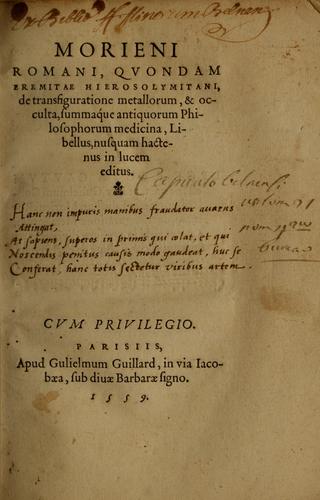 Ex Biblio
MORIENI
ROMANI, QVONDAM
EREMITAE HIEROSOLYMITANI,
de transfiguratione metallorum, & oc-
culta, summaque antiquorum Phi-
losophorum medicina, Li-
bellus, nusquam hacte-
nus in lucem
editus.
Hanc non impuris manibus fraudator auarus
Attingat,
At sapiens, superos in primis qui colat, et qui
Noscendis penitus causis modo gaudeat, huc se
Conferat, hanc totis sectetur viribus artem.
CVM PRIVILEGIO.
PARISIIS,
Apud Gulielmum Guillard, in via Iaco-
bæa, sub diuæ Barbaræ signo.
1559.